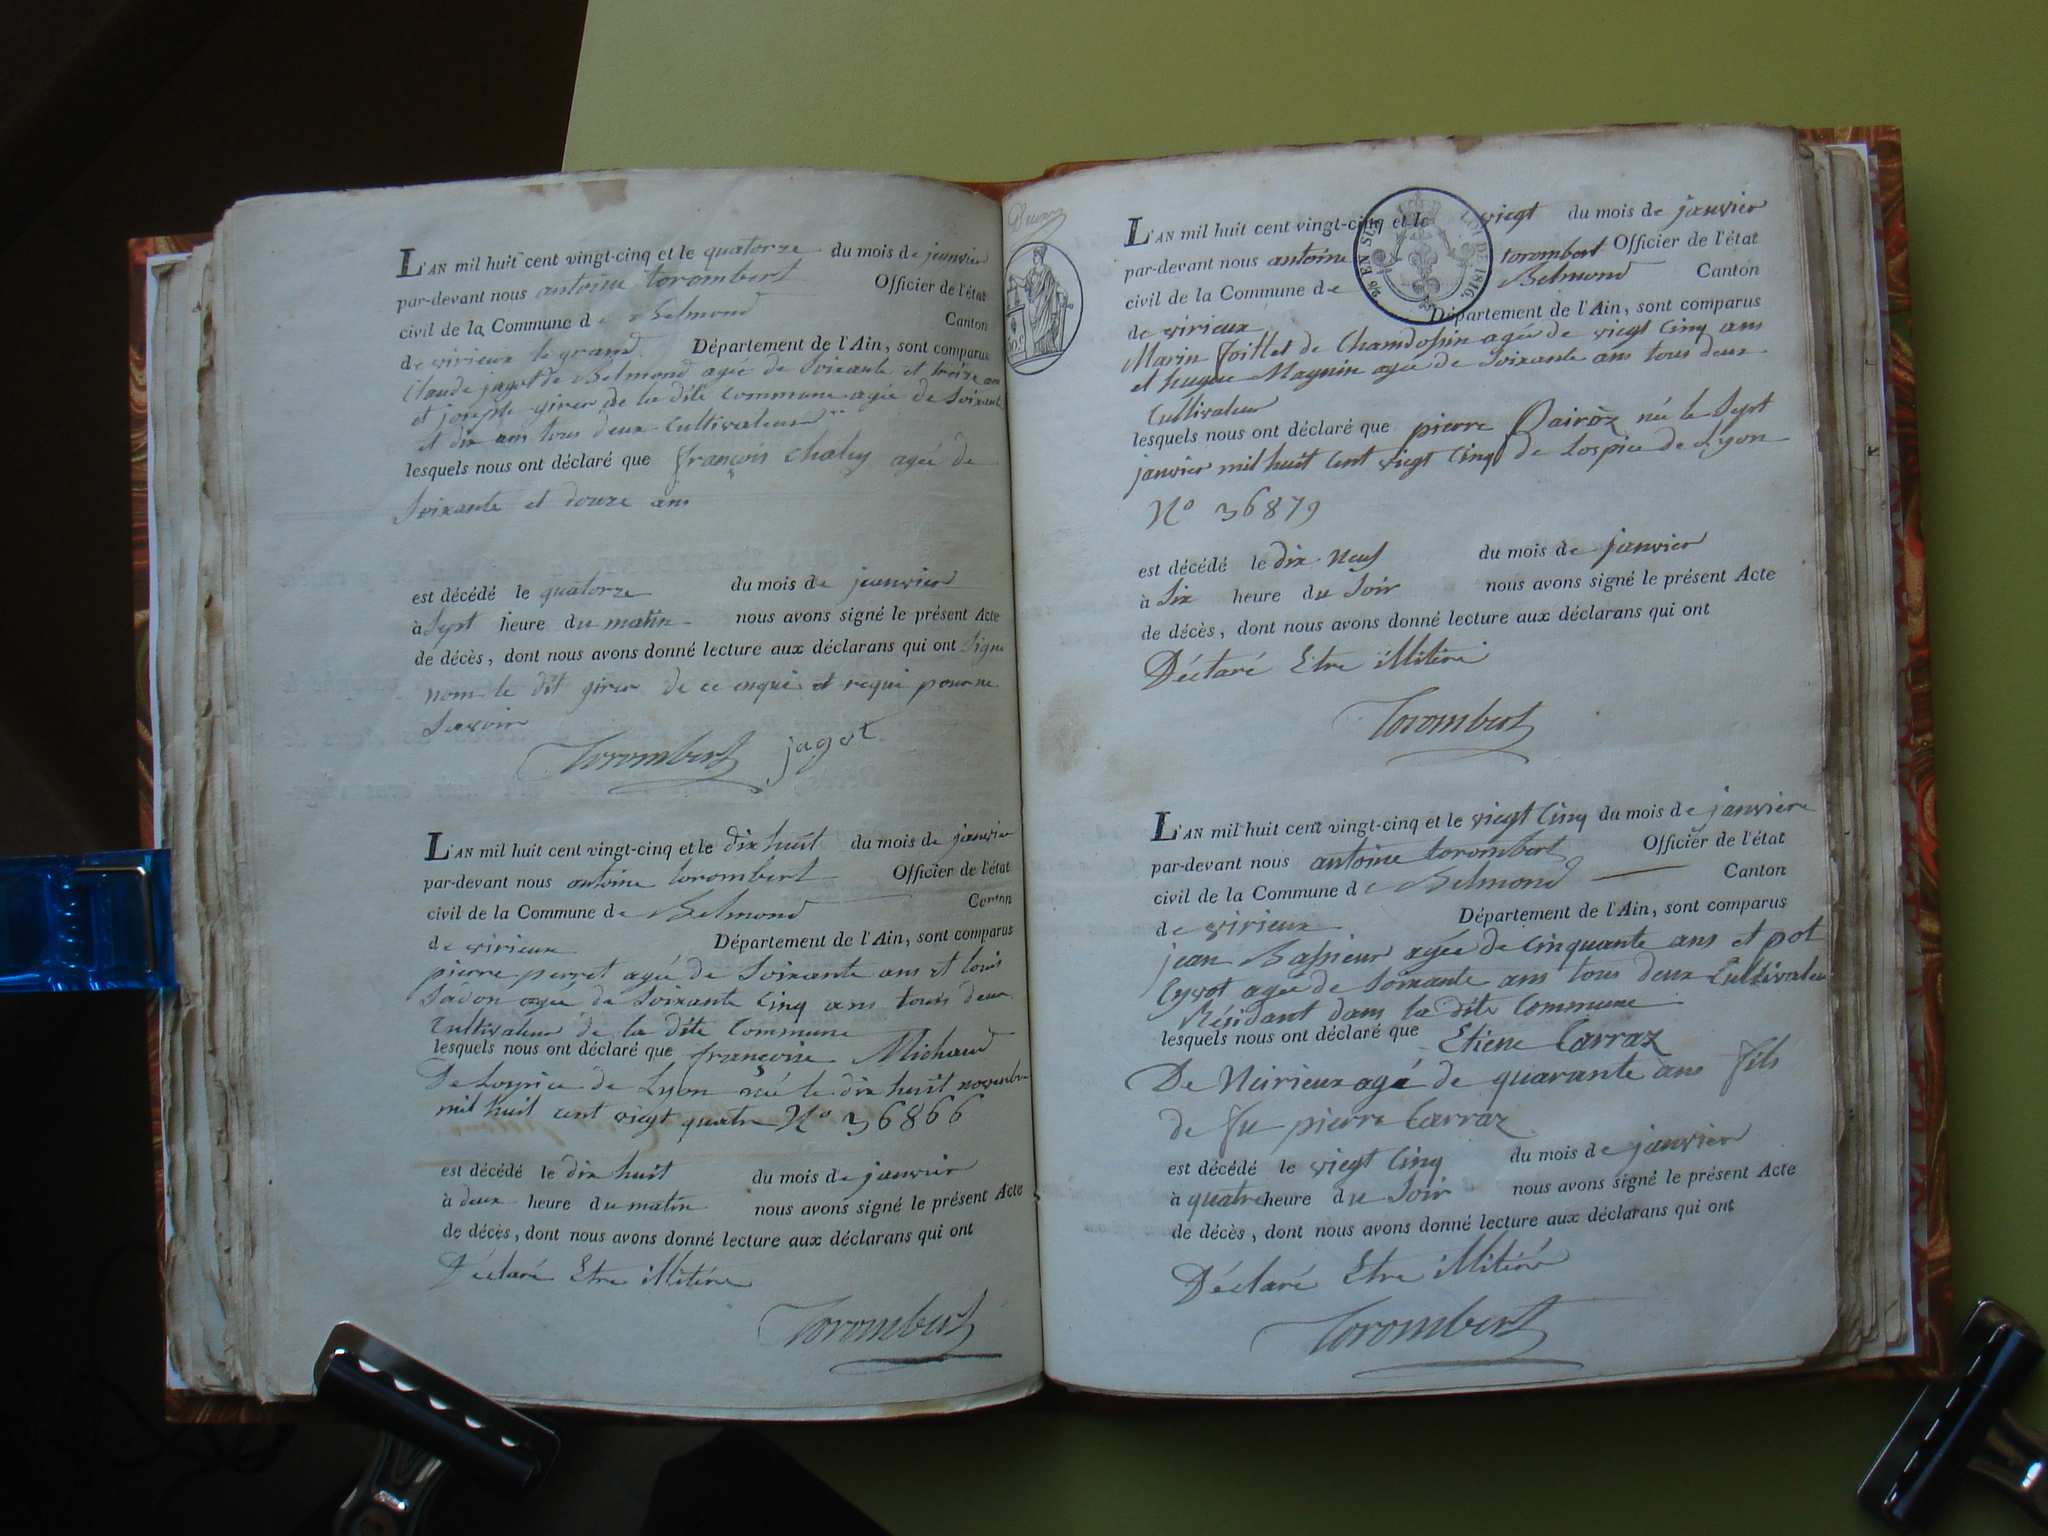 L'AN mil huit cent vingt-cinq et le quatorze du mois de janvier
par-devant nous antoine torombert Officier de l'état
civil de la Commune de Belmond Canton
de virieux le grand Département de l'Ain, sont comparus
Claude jagot de Belmond agée de Soixante et treize ans
et joseph girer de la dite Commune agée de Soixante
et dix ans tous deux Cultivateur
lesquels nous ont déclaré que françois chaley agée de
Soixante et douze ans
est décédé le quatorze du mois de janvier
à Sept heure du matin nous avons signé le présent Acte
de décès, dont nous avons donné lecture aux déclarans qui ont Signe
nom le dit girer de ce enqui et requi pour ne
Savoir
Torombert jagot
L'AN mil huit cent vingt-cinq et le dix huit du mois de janvier
par-devant nous antoine torombert Officier de l'état
civil de la Commune de Belmond Canton
de virieux Département de l'Ain, sont comparus
pierre perret agée de Soixante ans et louis
Sadon agée de Soixante Cinq ans tous deux
Cultivateur de la dite Commune
lesquels nous ont déclaré que françoise Michaud
De Lospice de Lyon née le dix huit novembre
mil huit cent viegt quatre No 36866
est décédé le dix huit du mois de janvier
à deux heure du matin nous avons signé le présent Acte
de décès, dont nous avons donné lecture aux déclarans qui ont
Déclaré Etre illitére
Torombert
L'AN mil huit cent vingt-cinq et le viegt du mois de janvier
par-devant nous antoine torombert Officier de l'état
civil de la Commune de Belmond Canton
de virieux Département de l'Ain, sont comparus
Marin Joillet de Chamdossin agée de viegt Cinq ans
et hugue Magnin agée de Soixante ans tous deux
Cultivateur
lesquels nous ont déclaré que pierre Pairoz née le Sept
janvier mil huit cent viegt Cinq de Lospice de Lyon
No 36879
est décédé le dix neuf du mois de janvier
à Six heure du Soir nous avons signé le présent Acte
de décès, dont nous avons donné lecture aux déclarans qui ont
Déclaré Etre illitéré
Torombert
EN SUS LOI DE 1816.
L'AN mil huit cent vingt-cinq et le viegt Cinq du mois de janviere
par-devant nous antoine torombert Officier de l'état
civil de la Commune de Belmond Canton
de virieux Département de l'Ain, sont comparus
jean Bassieur agée de Cinquante ans et pol
Cyvot agée de Soixante ans tous deux Cultivateur
Résidant dans la dite Commune
lesquels nous ont déclaré que Etiene Carraz
De Neirieux agé de quarante ans fils
de fu pierre Carraz
est décédé le viegt Cinq du mois de janvier
à quatre heure du Soir nous avons signé le présent Acte
de décès, dont nous avons donné lecture aux déclarans qui ont
Déclaré Etre illitéré
Torombert